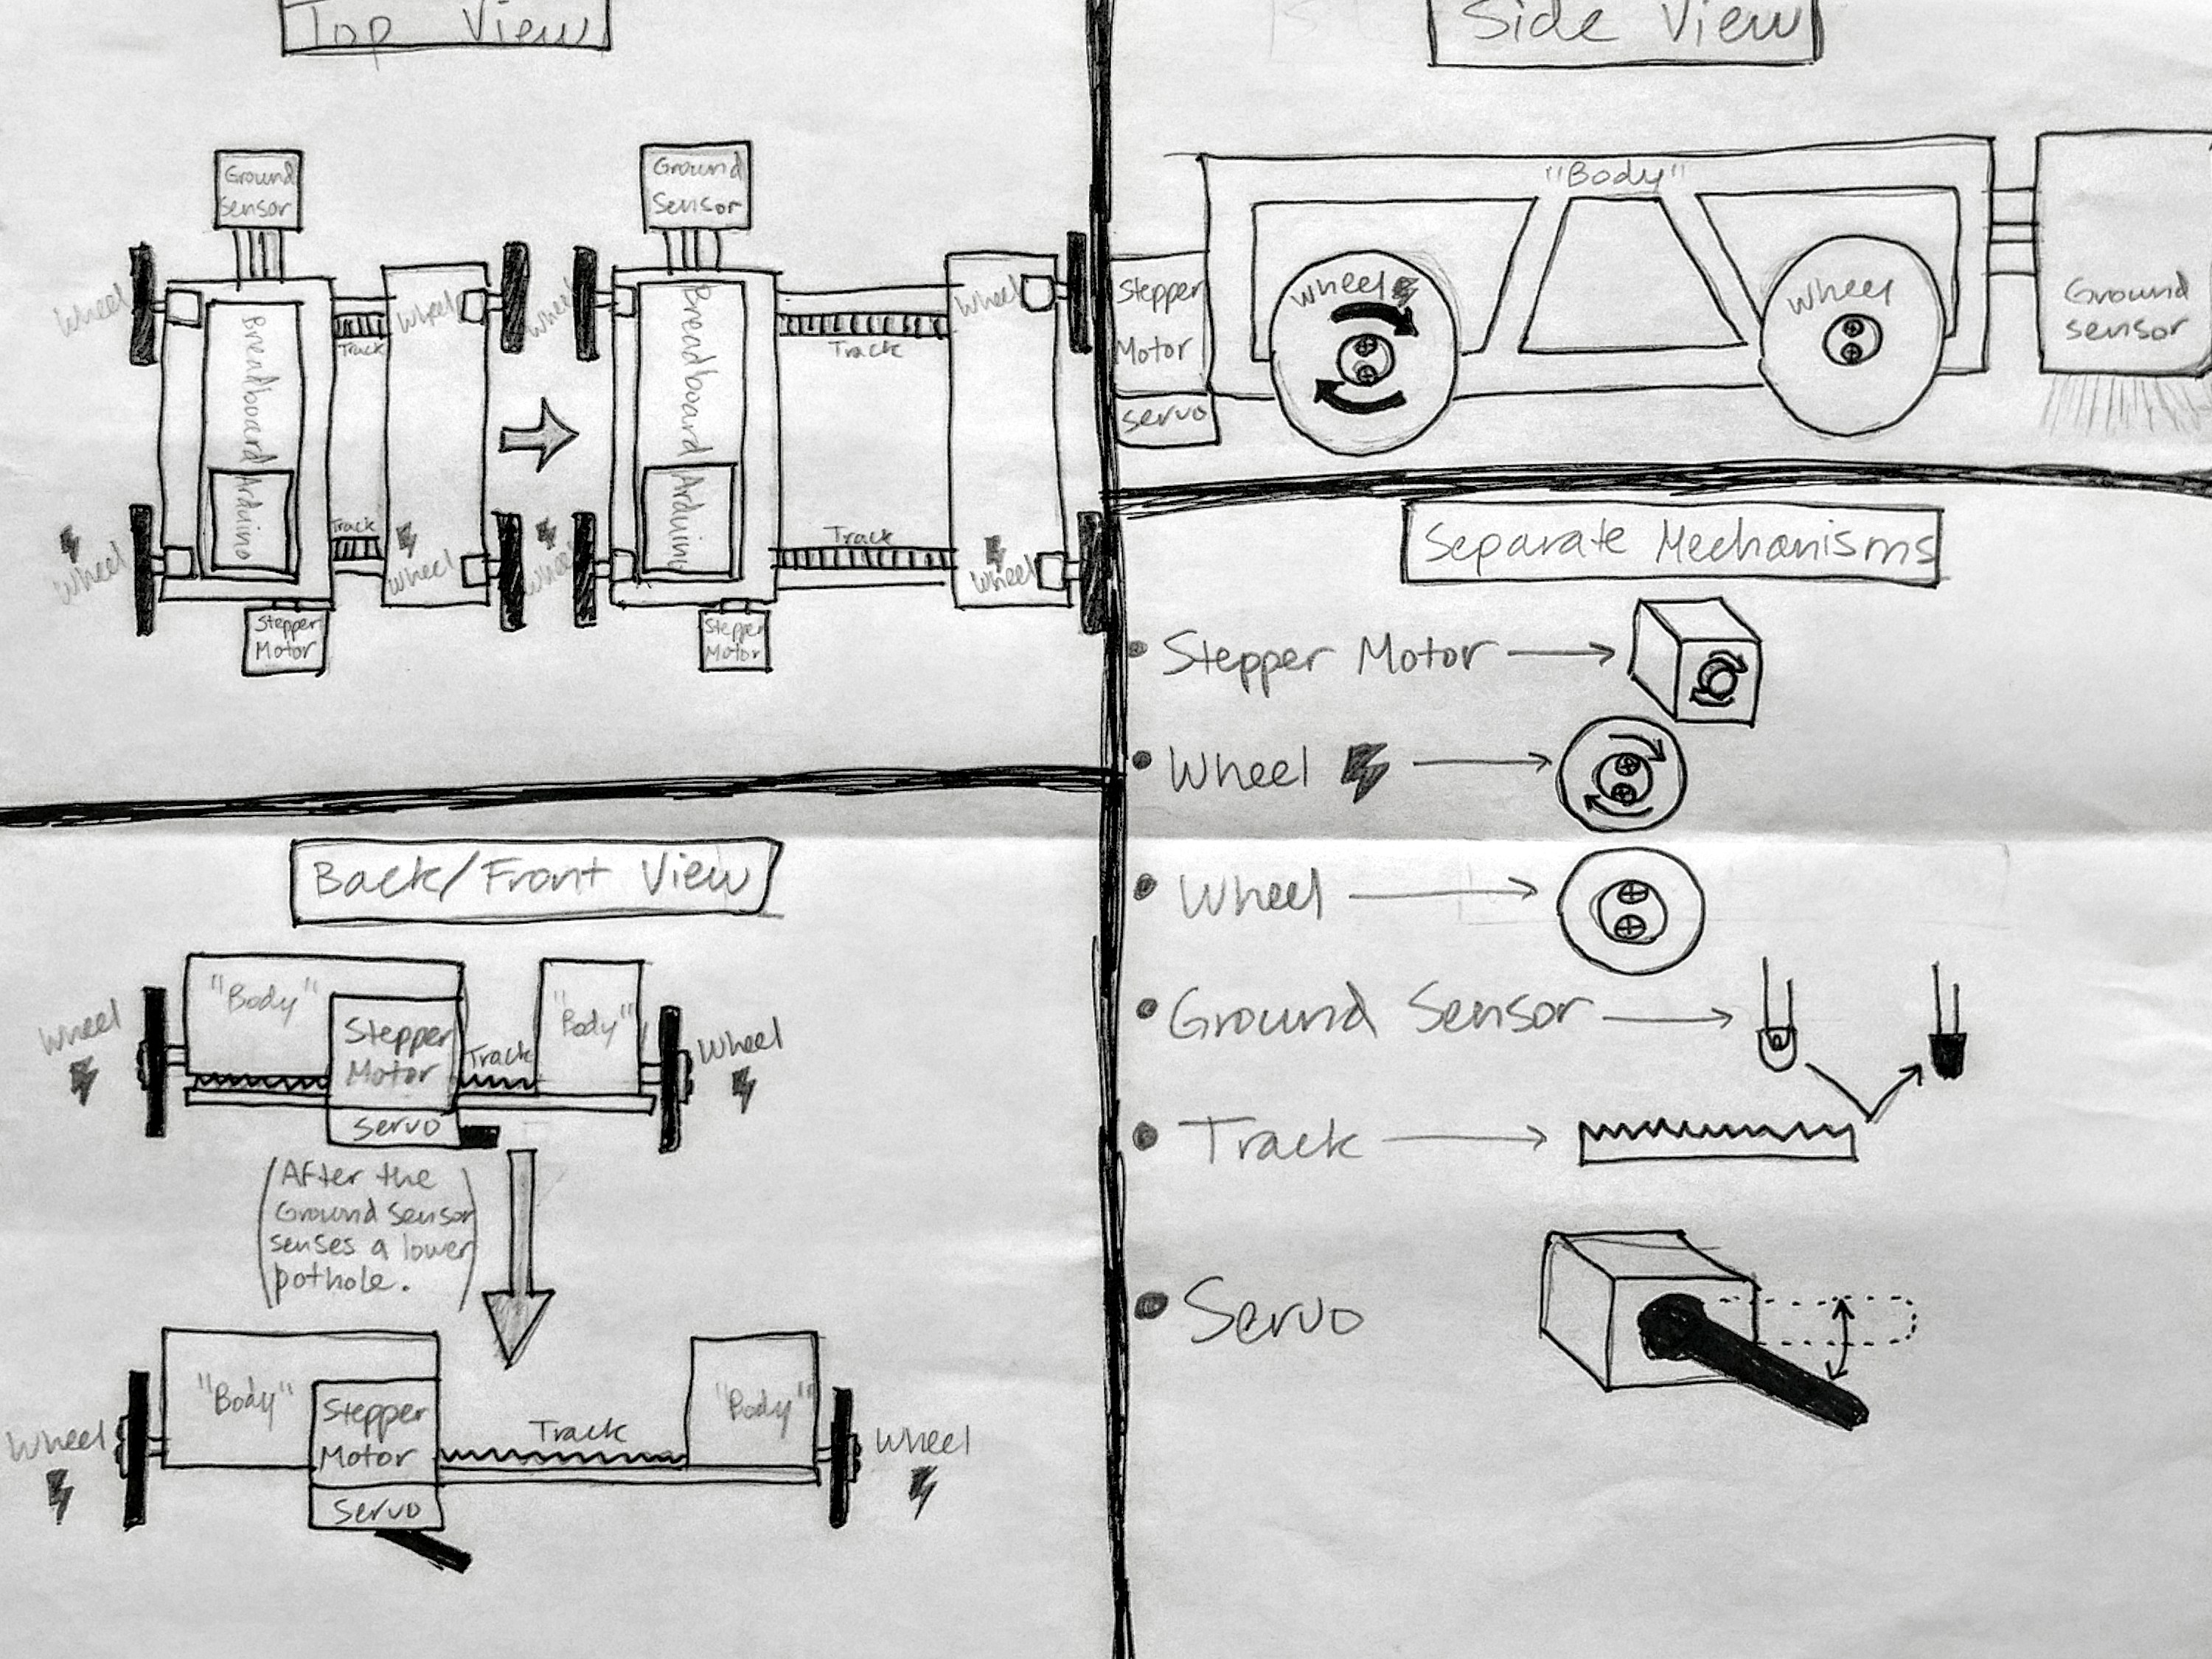 Top View
Ground
Sensor
Ground
Sensor
Wheel
Wheel
Wheel
Wheel
Track
Track
Breadboard
Breadboard
Arduino
Arduino
Track
Track
Wheel
Wheel
Wheel
Wheel
Stepper
Motor
Stepper
Motor
Side View
"Body"
Stepper
Motor
Servo
Wheel
Wheel
Ground
sensor
Back/Front View
Wheel
"Body"
Stepper
Motor
Track
"Body"
Wheel
Servo
(After the
Ground sensor
senses a lower
pothole.)
Wheel
"Body"
Stepper
Motor
Track
"Body"
Wheel
Servo
Separate Mechanisms
• Stepper Motor
• Wheel
• Wheel
• Ground Sensor
• Track
• Servo